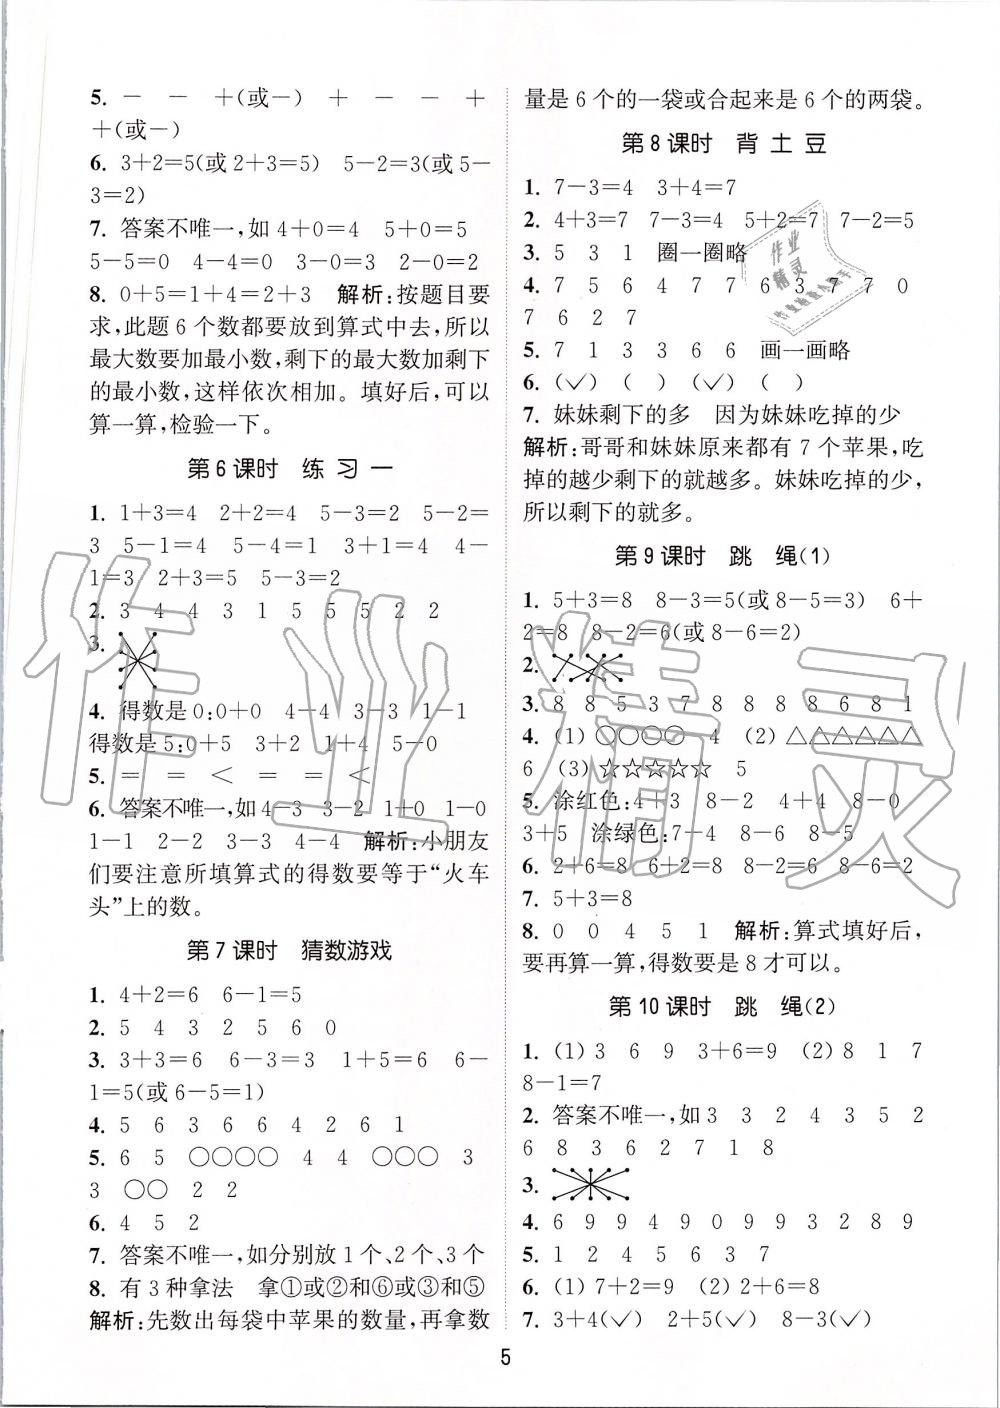 5. － － ＋(或－) ＋ － － ＋
＋(或－)
6. 3＋2＝5(或2＋3＝5) 5－2＝3(或5－
3＝2)
7. 答案不唯一,如4＋0＝4 5＋0＝5
5－5＝0 4－4＝0 3－0＝3 2－0＝2
8. 0＋5＝1＋4＝2＋3 解析:按题目要
求,此题6个数都要放到算式中去,所以
最大数要加最小数,剩下的最大数加剩下
的最小数,这样依次相加。填好后,可以
算一算,检验一下。
第6课时 练习一
1. 1＋3＝4 2＋2＝4 5－3＝2 5－2＝
3 5－1＝4 5－4＝1 3＋1＝4 4－
1＝3 2＋3＝5 5－5＝0
2. 3 4 4 3 1 5 5 5 2 2
3.
4. 得数是0:0＋0 4－4 3－3 1－1
得数是5:0＋5 3＋2 1＋4 5－0
5. ＝ ＝ ＜ ＝ ＝ ＜
6. 答案不唯一,如4－3 3－2 1＋0 1－0
1－1 2－2 3－3 4－4 解析:小朋友
们要注意所填算式的得数要等于“火车
头”上的数。
第7课时 猜数游戏
1. 4＋2＝6 6－1＝5
2. 5 4 3 2 5 6 0
3. 3＋3＝6 6－3＝3 1＋5＝6 6－
1＝5(或6－5＝1)
4. 5 6 3 6 6 4 2 6 1
5. 6 5 ○○○○ 4 4 ○○○ 3
3 ○○ 2 2
6. 4 5 2
7. 答案不唯一,如分别放1个、2个、3个
8. 有3种拿法 拿①或②和⑥或③和⑤
解析:先数出每袋中苹果的数量,再拿数
量是6个的一袋或合起来是6个的两袋。
第8课时 背土豆
1. 7－3＝4 3＋4＝7
2. 4＋3＝7 7－3＝4 5＋2＝7 7－2＝5
3. 5 3 1 圈一圈略
4. 7 5 6 4 7 7 6 3 7 7 0
7 6 2 7
5. 7 1 3 3 6 6 画一画略
6. (✓) ( ) (✓) ( )
7. 妹妹剩下的多 因为妹妹吃掉的少
解析:哥哥和妹妹原来都有7个苹果,吃
掉的越少剩下的就越多。妹妹吃掉的少,
所以剩下的就多。
第9课时 跳绳(1)
1. 5＋3＝8 8－3＝5(或8－5＝3) 6＋
2＝8 8－2＝6(或8－6＝2)
2.
3. 8 8 5 3 7 8 8 8 8 6 8 1
4. (1) ○○○○ 4 (2) △△△△△△
6 (3) ☆☆☆☆☆ 5
5. 涂红色:4＋3 8－2 4＋4 8－0
3＋5 涂绿色:7－4 8－6 8－5
6. 2＋6＝8 6＋2＝8 8－2＝6 8－6＝2
7. 5＋3＝8
8. 0 0 4 5 1 解析:算式填好后,
要再算一算,得数要是8才可以。
第10课时 跳绳(2)
1. (1) 3 6 9 3＋6＝9 (2) 8 1 7
8－1＝7
2. 答案不唯一,如3 3 2 4 3 5 2
6 8 3 6 2 7 1 8
3.
4. 6 9 9 4 9 0 9 9 3 2 8 9
5. 1 2 4 5 6 3 7
6. (1) 7＋2＝9 (2) 2＋6＝8
7. 3＋4(✓) 2＋5(✓) 8－3(✓)
5
作业精灵
作业精灵